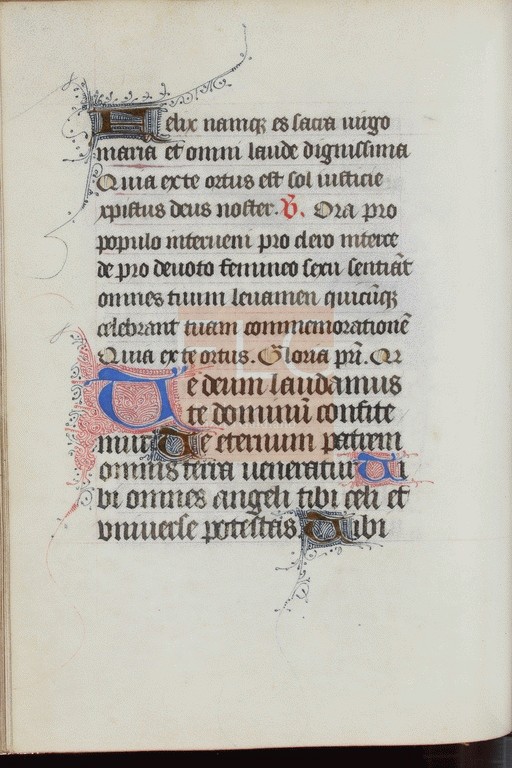 Felix namq; es sacra uirgo
maria et omni laude dignissima
Quia ex te ortus est sol iusticie
xpistus deus noster. V. Ora pro
populo interueni pro clero interce
de pro deuoto femineo sexu sentiāt
omnes tuum leuamen quicūq;
celebrant tuam commemorationē
Quia ex te ortus. Gloria pr̄i. Qr
Te deum laudamus
te dominū confite
mur Te eternum patrem
omnis terra ueneratur Ti
bi omnes angeli tibi celi et
vniuerse potestates Tibi